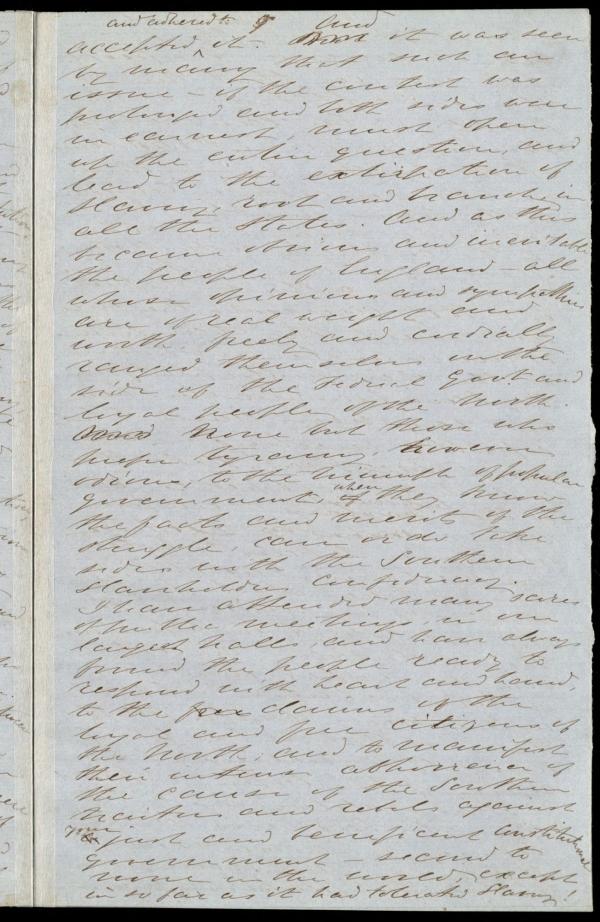 and adhered to and
accepted it. it was seen
by many that such an
issue – if the contest was
prolonged and both sides were
in earnest, must open
up the entire question, and
lead to the extirpation of
Slavery, root and branch, in
all the States. And as this
became obvious and inevitable
the people of England – all
whose opinions and sympathies
are of real weight and
worth freely and cordially
ranged themselves on the
side of the Federal Govt and
loyal people of the North.
None but those who
prefer tyranny, however
odious, to the triumph of popular
government, when they know
the facts and merits of the
struggle, can or do take
sides with the Southern
Slaveholding confederacy.
I have attended many scores
of public meetings, in our
largest halls, and have always
found the people ready to
respond with heart and hand,
to the claims of the
loyal and free citizens of
the North, and to manifest
their intense abhorrence of
the cause of the Southern
traitors and rebels against
your just and beneficent Constitutional
government – second to
none in the world, except
in so far as it had tolerated Slavery!